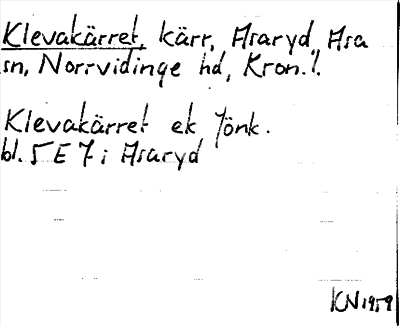 Klevakärret, kärr, Asaryd, Asa
sn, Norrvidinge hd, Kron. l.
Klevakärret ek Jönk.
bl. 5 E 7 i Asaryd
KN 1959